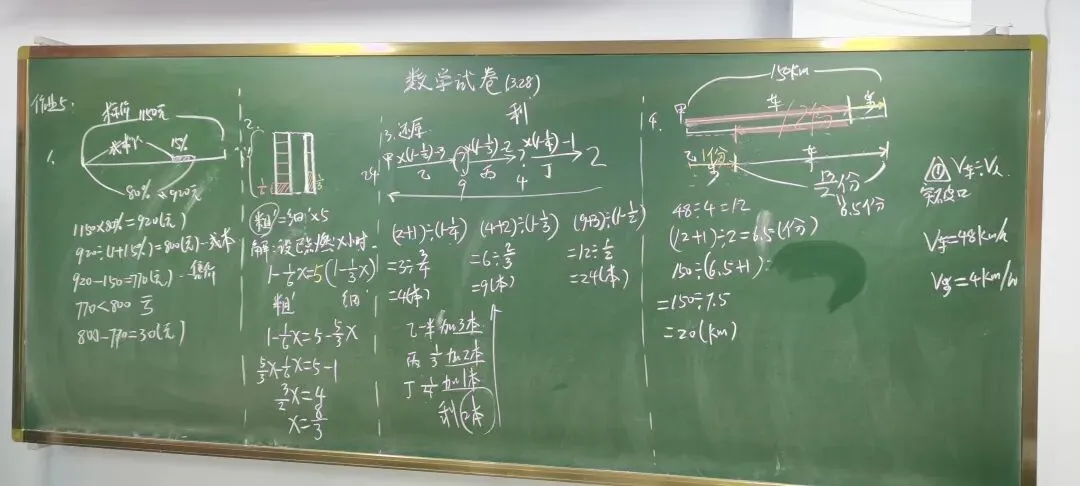 数学试卷(3.28)
作业5:
1.
标价 1150元
成本"1"
15%
80% → 920元
1150×80%=920(元)
920÷(1+15%)=800(元)--成本
920-150=770(元)--售价
770<800 亏
800-770=30(元)
2.
粗'=细'×5
解:设已点燃x小时.
1-⅙x=5(1-⅓x)
粗' 细
1-⅙x=5-5/3x
5/3x-⅙x=5-1
3/2x=4
x=8/3
3.还原
剩
甲 ×(1-½)-3 ×(1-⅓)-2 ×(1-¼)-1 2
24 乙 9 丙 4 丁
(2+1)÷(1-¼) (4+2)÷(1-⅓) (9+3)÷(1-½)
=3÷¾ =6÷⅔ =12÷½
=4(本) =9(本) =24(本)
乙 一半 加3本
丙 ⅓ 加2本
丁 ¼ 加1本
剩 2本
4.
150km
甲 车 12份 步
乙 1份 步 车
13/2份
6.5份
48÷4=12
(12+1)÷2=6.5(份)
150÷(6.5+1)=
=150÷7.5
=20(km)
① V车÷V人
突破口
V车=48km/h
V步=4km/h